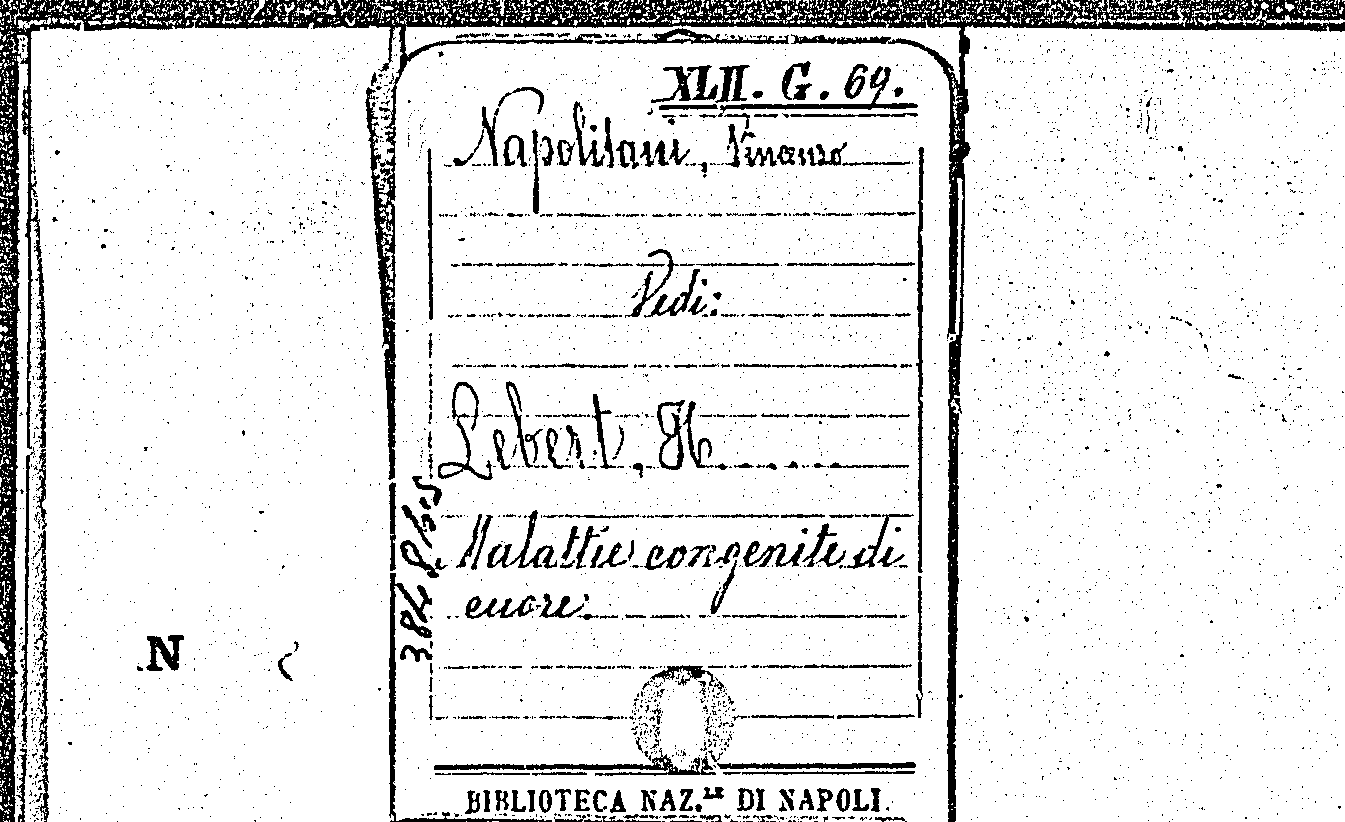 XLII. G. 69.
Napolitani, Vincenzo
Vedi:
Lebert, H......
Malattie congenite di
cuore.
N
BIBLIOTECA NAZ.LE DI NAPOLI.